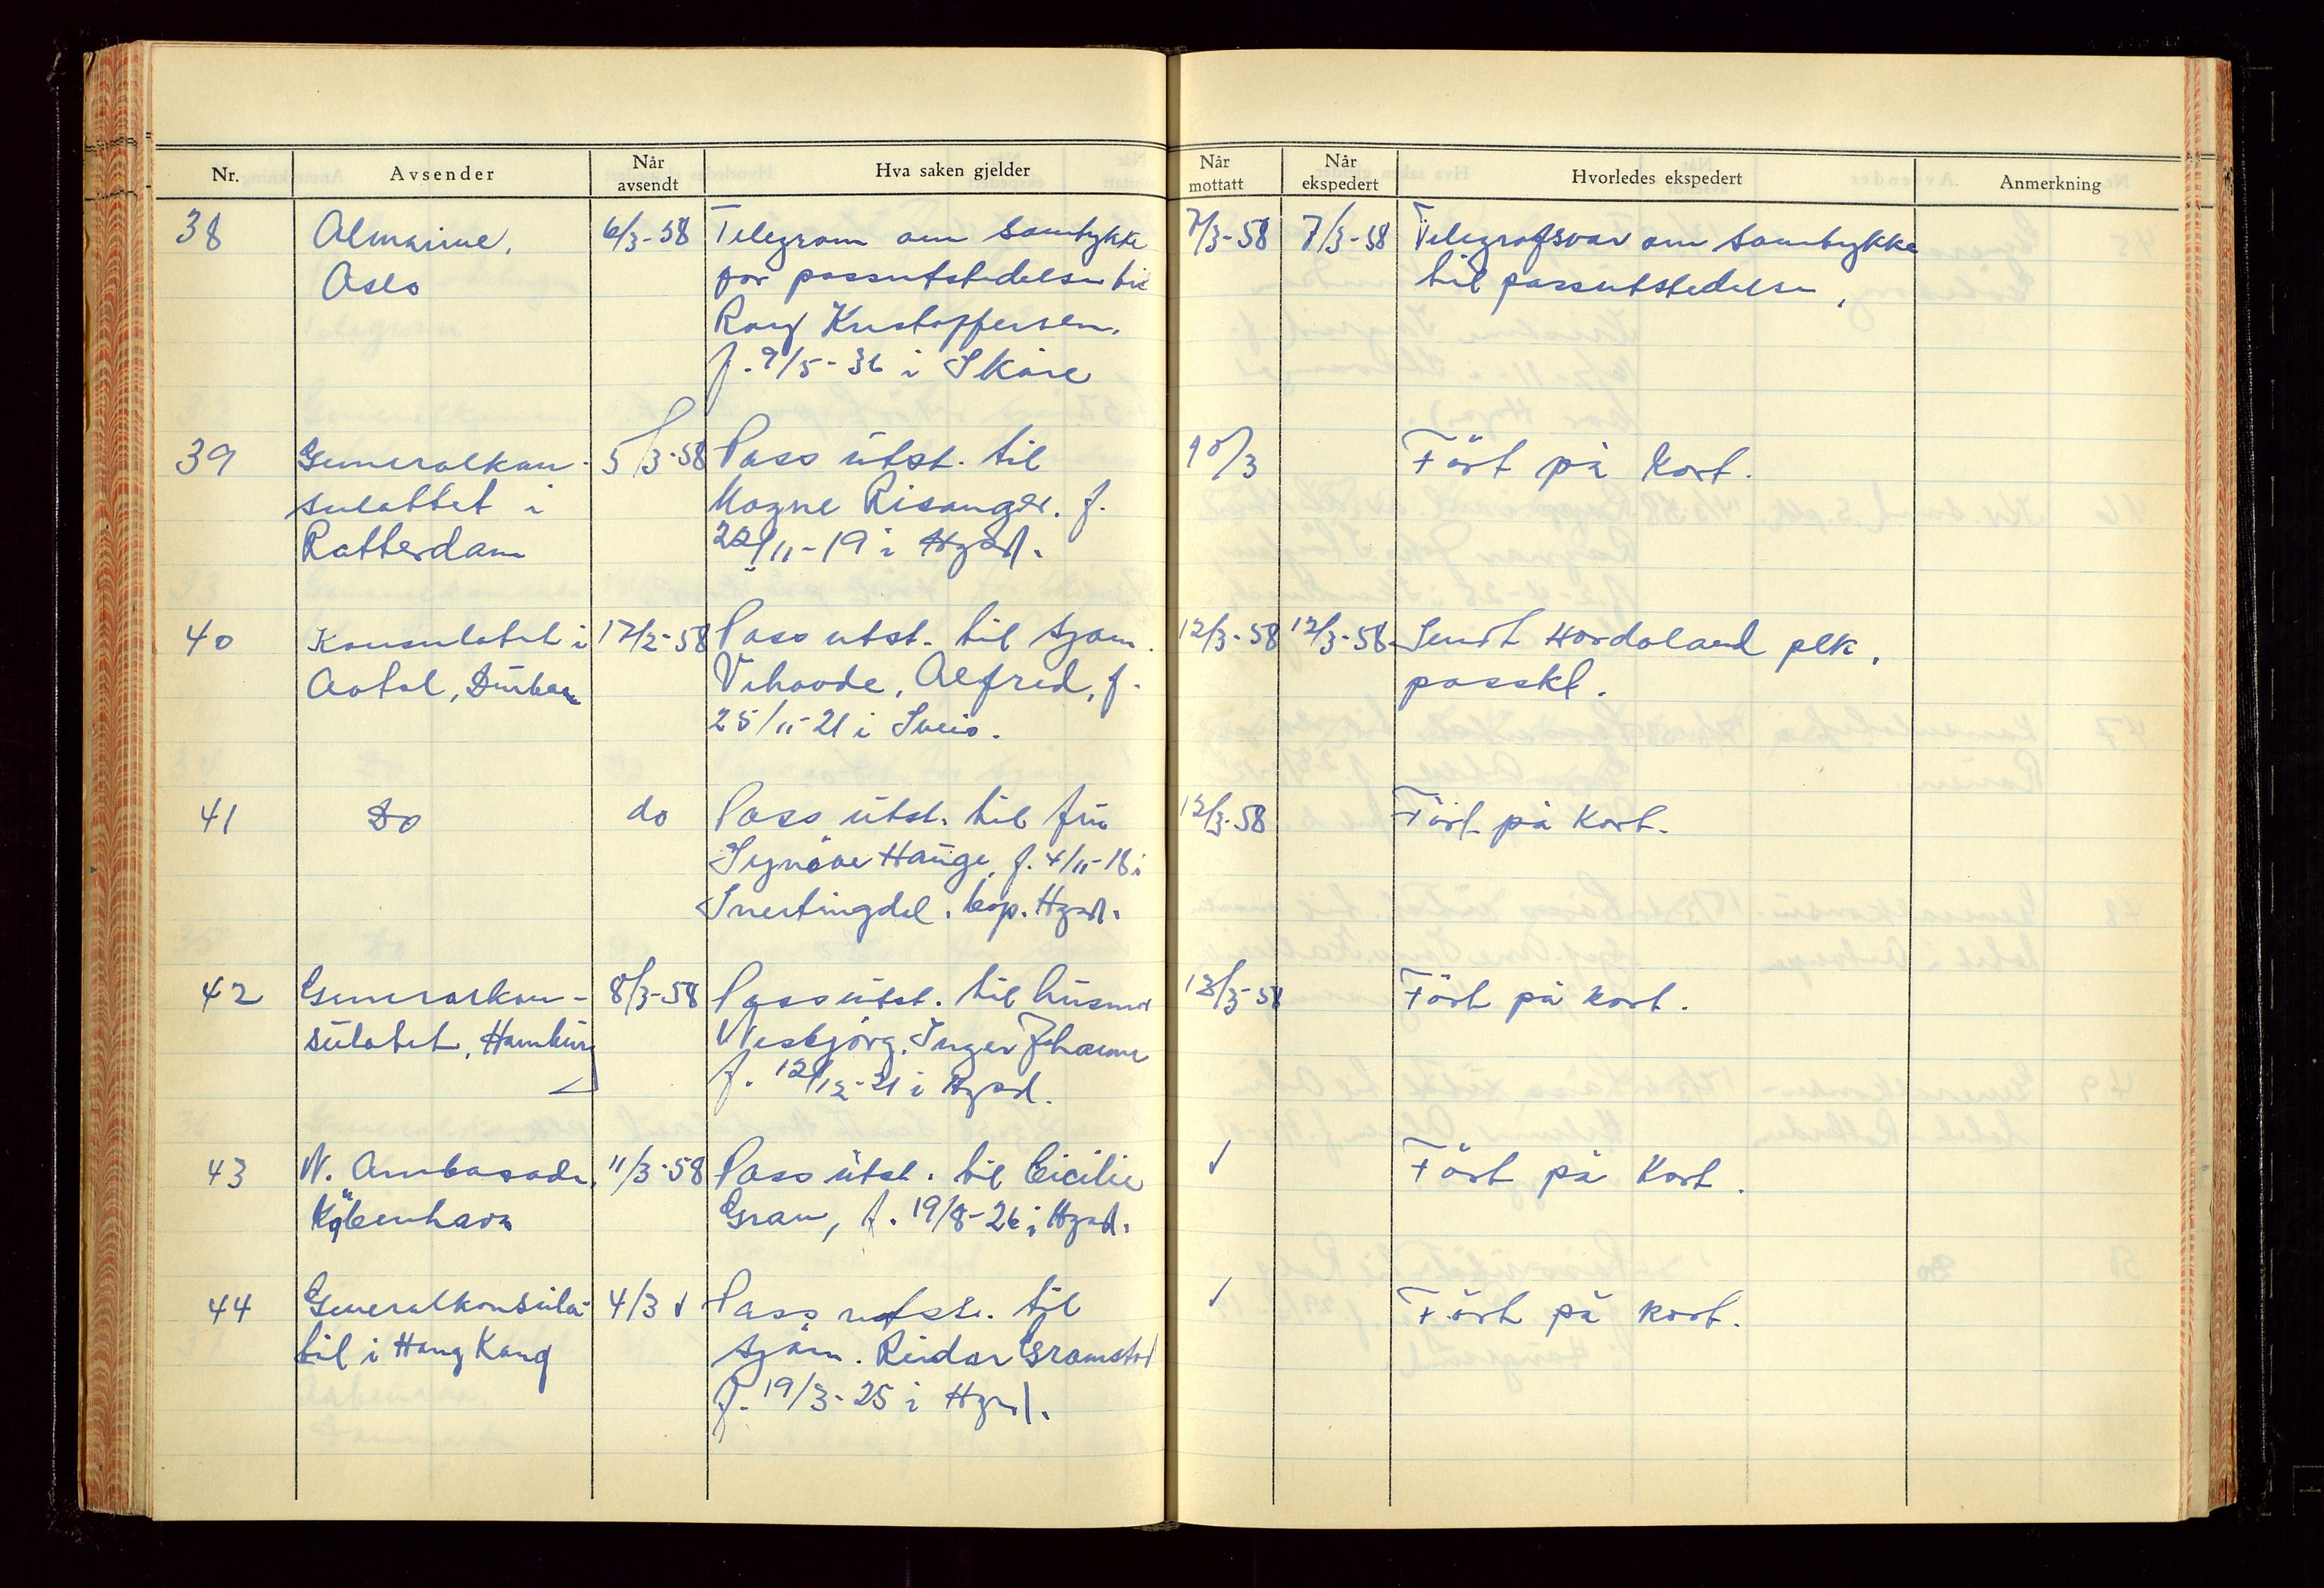 Nr.
Avsender
Når avsendt
Hva saken gjelder
Når mottatt
Når ekspedert
Hvorledes ekspedert
Anmerkning
38 Almarine, 6/3-58 Telegram om samtykke 7/3-58 7/3-58 Telegrafsvar om samtykke
Oslo for passutstedelse til til passutstedelse,
Kristoffersen,
f. 9/5-36 i Skåre
39 Generalkon- 5/3-58 Pass utst. til 10/3 Fört på kort.
sulattet i Magne Risanger. f.
Rotterdam 22/11-19 i Hgsd.
40 Konsulatet i 17/2-58 Pass utst. til sjøm. 12/3-58 12/3-58 Sendt Hordaland plk.
Durban Vihovde, Alfred, f. passkt.
25/11-21 i Sveio.
41 Do do Pass utst. til fru 12/3-58 Fört på kort.
Synöve Hauge, f. 4/11-18 i
Snertingdal. bop. Hgsd.
42 Generalkon- 8/3-58 Pass utst. til husmor 12/3-58 Fört på kort.
sulatet, Hamburg Nesbjörg, Inger Johanne
f. 12/12-21 i Hgsd.
43 N. Ambasade, 11/3-58 Pass utst. til Cicilie √ Fört på kort.
København Gran, f. 19/8-26 i Hgsd.
44 Generalkonsula- 4/3 √ Pass utst. til √ Fört på kort.
tet i Hong Kong sjöm. Reidar Gramstad
f. 19/3-25 i Hgsd.